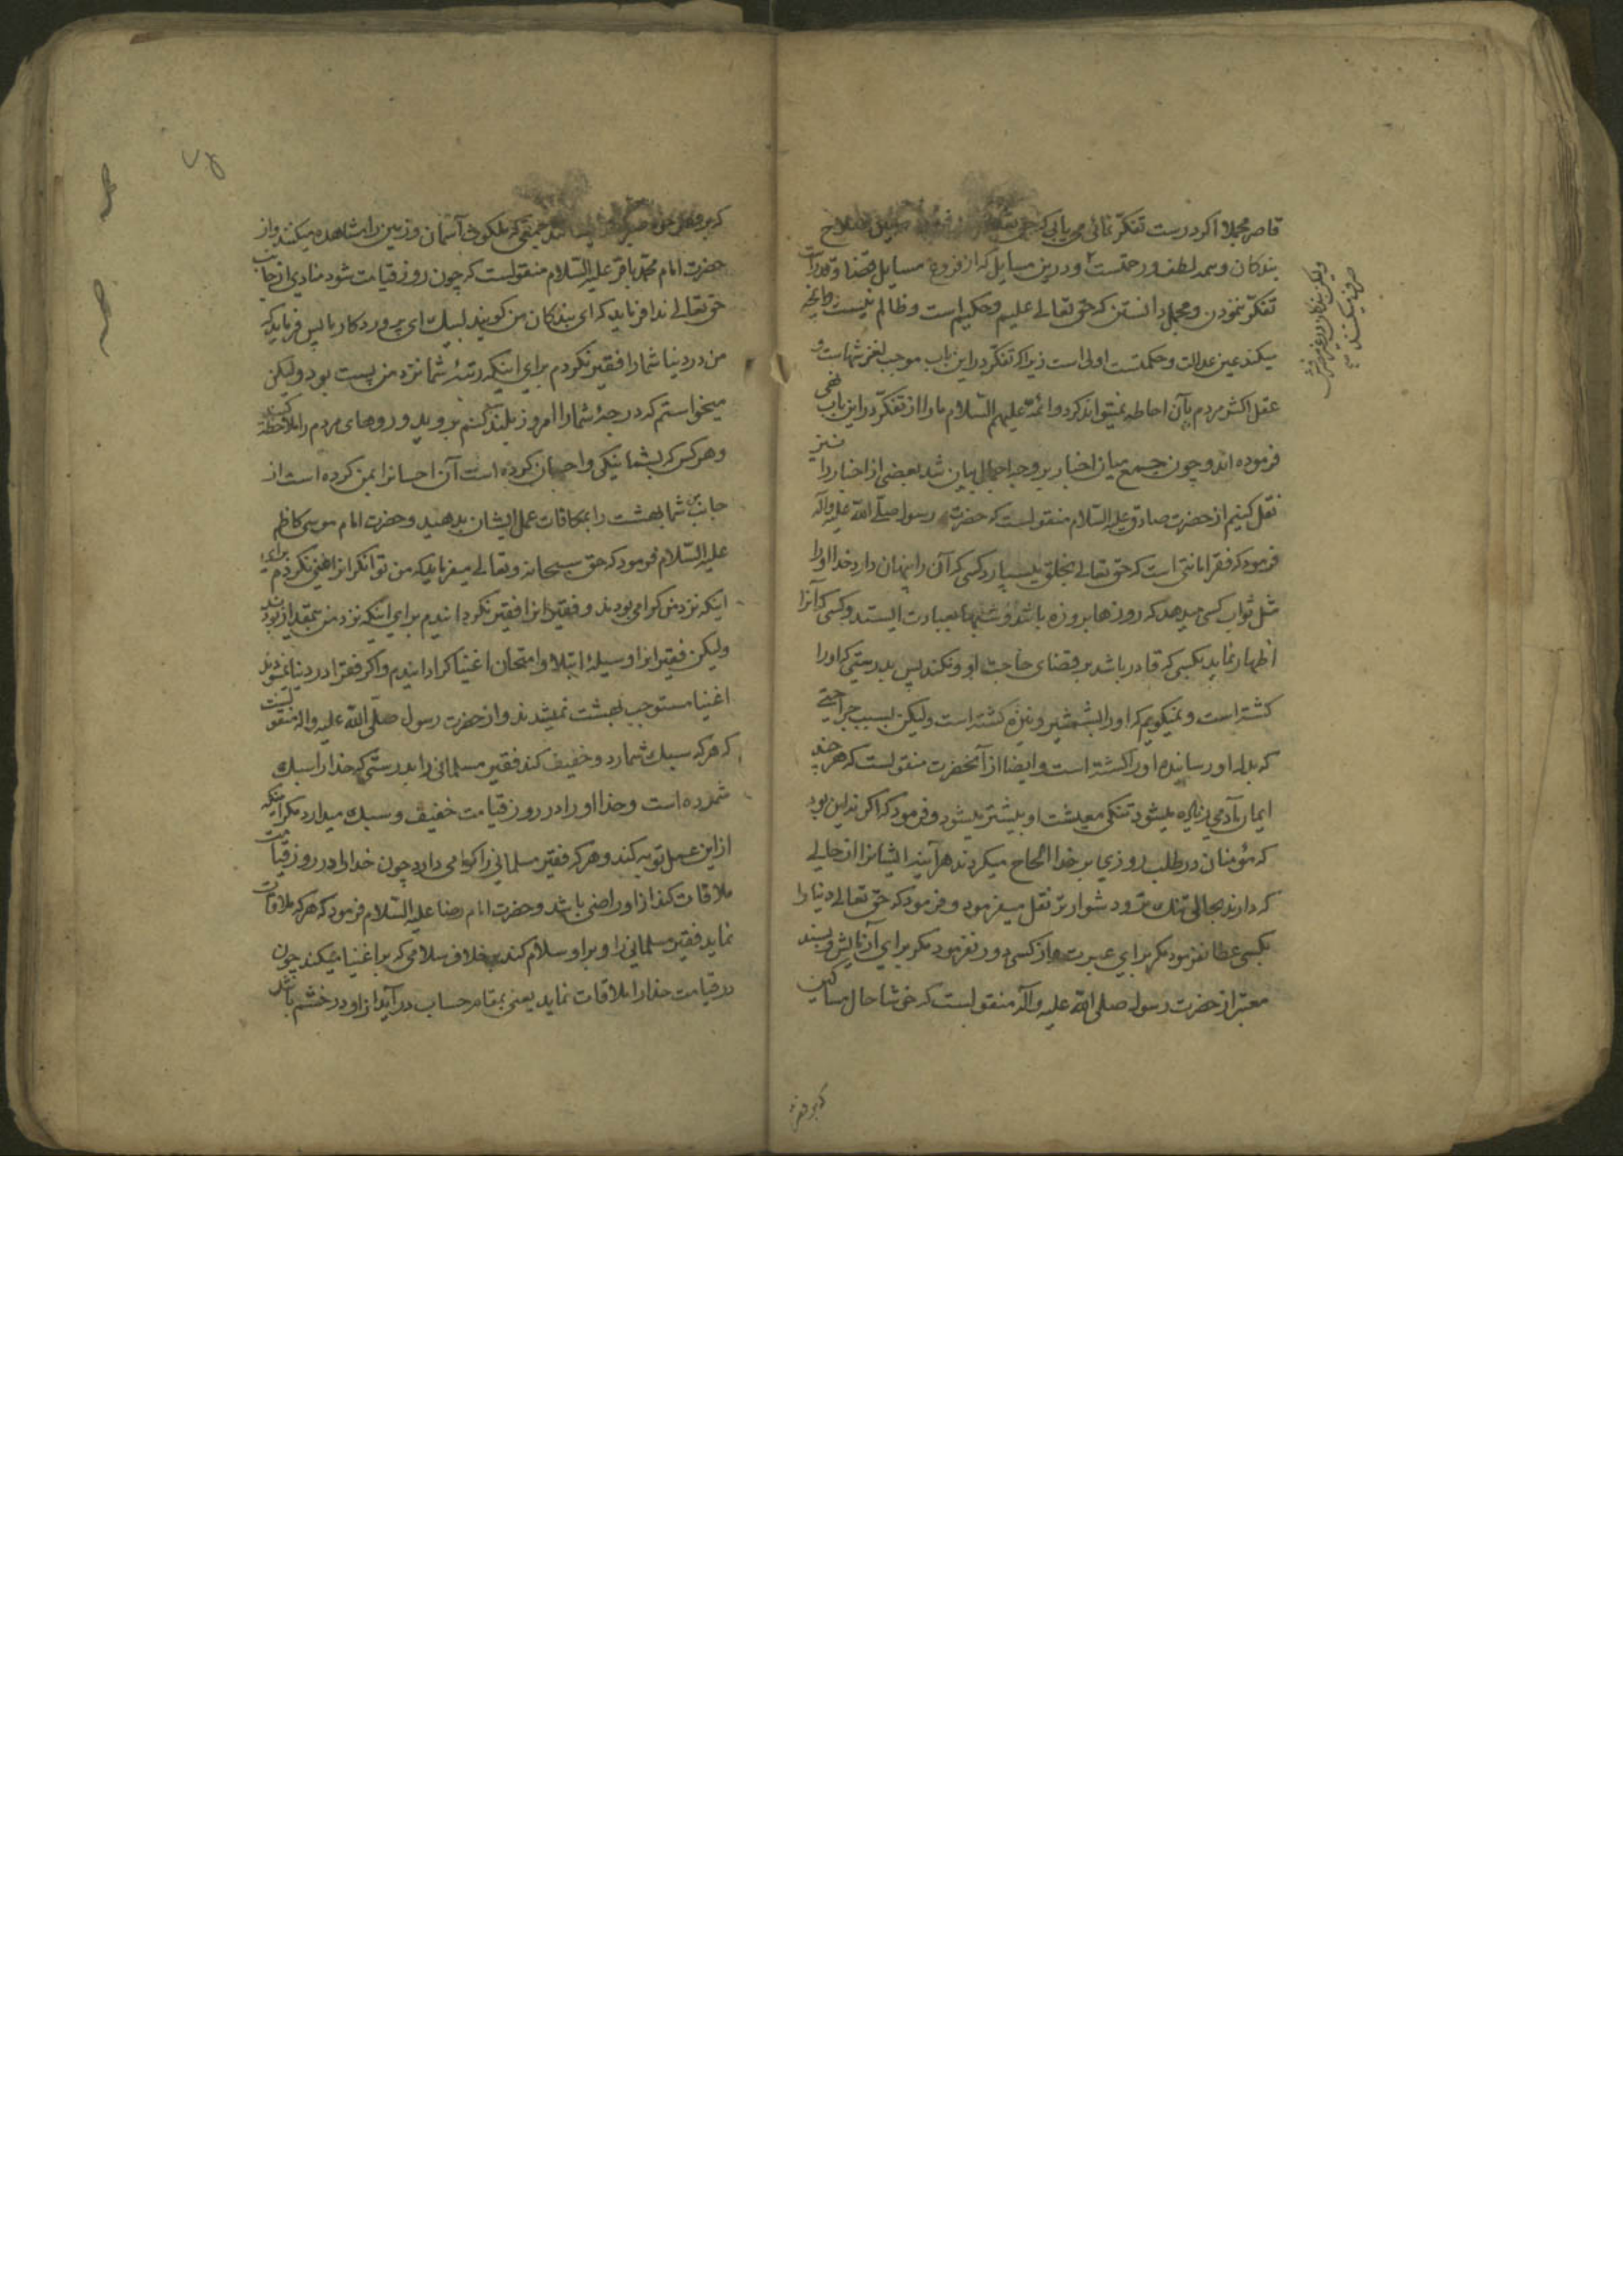 قاصر مجملا اگر درست تفکر نمائی می یابی که حق تعالی
بندکان و همه لطف و رحمتست و درین مسایل که از فروع مسایل قضا و قدرات
تفکر ننمودن و مجمل دانستن که حق تعالے علیم و حکیم است و ظالم نیست و آنچه
میکند عین عدالت و حکمتست اولی است زیرا که تفکر در این باب موجب لغزشهاست و
عقل اکثر مردم بآن احاطه نمیتواند کرد و ائمه علیهم السلام ما را از تفکر در این باب نهی
فرموده اند و چون جمع میان اخبار بر وجه اجمال بیان شد بعضی از اخبار را نیز
نقل کنیم از حضرت صادق علیه السلام منقولست که حضرت رسول صلی الله علیه وآله
فرمود که فقر امانتی است که حق تعالے بخلق میسپارد کسی که آن را پنهان دارد خدا او را
مثل ثواب کسی میدهد که روزها بروزه باشد و شبها بعبادت ایستد و کسی که آنرا
اظهار نماید بکسی که قادر باشد بر قضای حاجت او و نکند پس بدرستی که او را
کشته است و نمیکویم که او را بشمشیر و نیزه کشته است ولیکن بسبب جراحتی
که بدل او رسانده او را کشته است و ایضا از آنحضرت منقولست که هر چند
ایمان آدمی زیاده میشود تنکی معیشت او بیشتر میشود و فرمود که اکر نه این بود
که مؤمنان در طلب روزی بر خدا الحاح میکردند هر آینه ایشانرا از حالے
که دارند بحالی تنک تر و دشوار تر نقل میفرمود و فرمود که حق تعالے دنیا را
بکسی عطا نفرمود مکر برای عبرت و از کسی دور نفرمود مکر برای آزمایش و بسند
معتبر از حضرت رسول صلی الله علیه وآله منقولست که خوشا حال مساکین
که بر فقر
که بر فقر خود صبر که ملکوت آسمان و زمین را مشاهده میکنند و از
حضرت امام محمد باقر علیه السلام منقولست که چون روز قیامت شود منادی از جانب
حق تعالے ندا فرماید که ای بندکان من کویند لبیک ای پروردکار ما پس فرماید که
من در دنیا شما را فقیر نکردم برای اینکه رتبۀ شما نزد من پست بود ولیکن
میخواستم که درجۀ شما را امروز بلند کنم بروید و روهای مردم را ملاحظه کنید
و هر کس که بشما نیکی و احسان کرده است آن احسانرا بمن کرده است از
جانب من شما بهشت را بمکافات عمل ایشان بدهید و حضرت امام موسی کاظم
علیه السلام فرمود که حق سبحانه و تعالے میفرماید که من توانکرانرا غنی نکردم برای
اینکه نزد من کرامی بودند و فقیرانرا فقیر نکردانیدم برای اینکه نزد من بیمقدار بودند
ولیکن فقیرانرا وسیلۀ ابتلا و امتحان اغنیا کردانیدم و اکر فقرا در دنیا نمیبودند
اغنیا مستوجب بهشت نمیشدند و از حضرت رسول صلی الله علیه واله منقولست
که هر که سبک شمارد و خفیف کند فقیر مسلمانی را بدرستی که خدا را سبک
شمرده است و خدا او را در روز قیامت خفیف و سبک میدارد مکر آنکه
از این عمل توبه کند و هر که فقیر مسلمانی را کرامی دارد چون خدا را در روز قیامت
ملاقات کند از او راضی باشد و حضرت امام رضا علیه السلام فرمود که هر که ملاقات
نماید فقیر مسلمانی را و بر او سلام کند بر خلاف سلامی که بر اغنیا میکند چون
در قیامت خدا را ملاقات نماید یعنی بمقام حساب در آید از او در خشم باشد